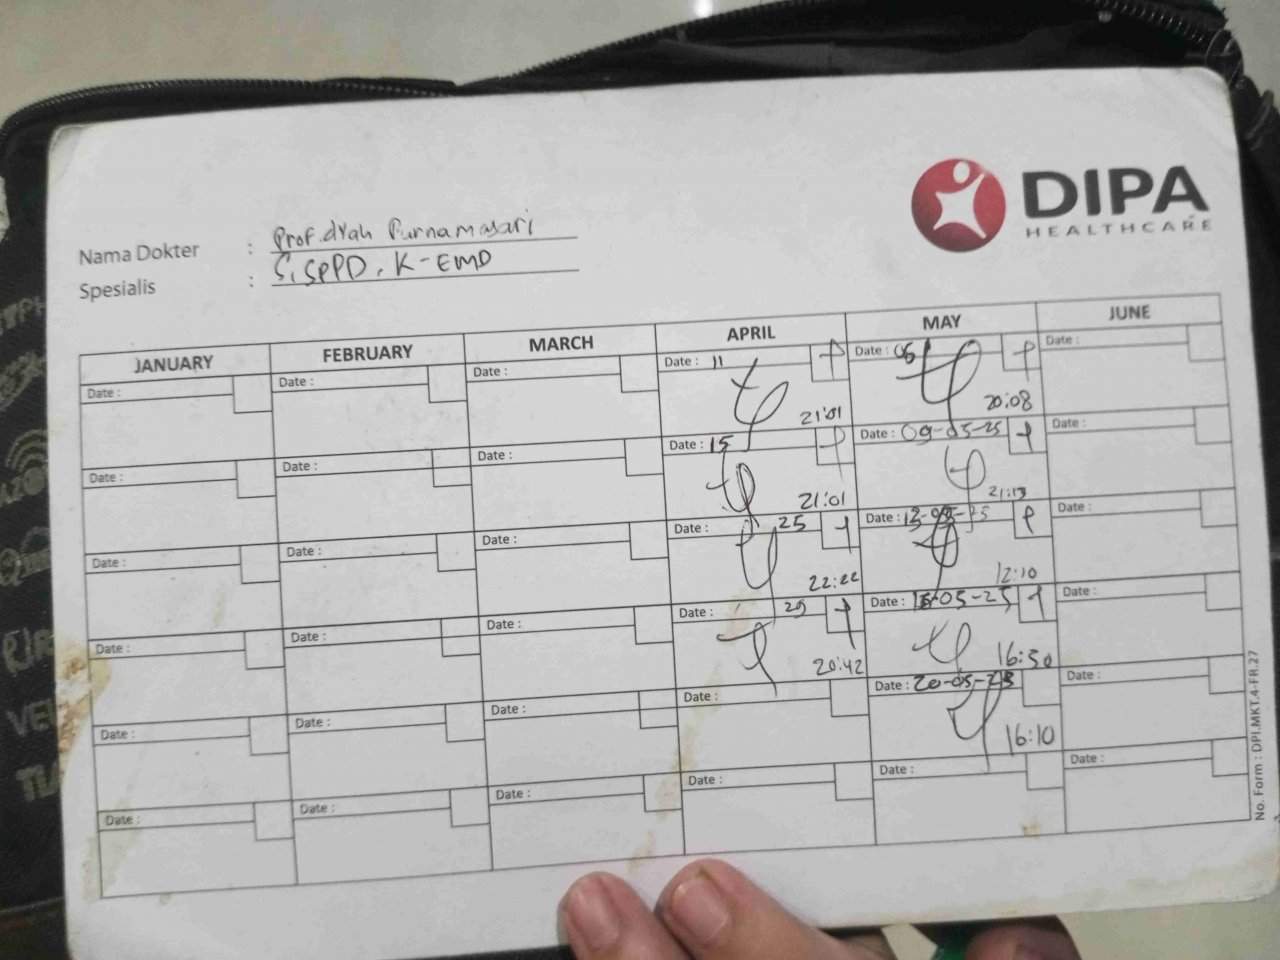 DIPA
HEALTHCARE
Nama Dokter : Prof. dyah Purnamasari
Spesialis : S, SpPD, K-EMD
JANUARY FEBRUARY MARCH APRIL MAY JUNE
Date : Date : Date : Date : 11 Date : 06 Date :
21:01 20:08
Date : Date : Date : Date : 15 Date : 09-05-25 Date :
21:01 21:13
Date : Date : Date : Date : 25 Date : 13-05-25 Date :
22:22 12:10
Date : Date : Date : Date : 29 Date : 15-05-25 Date :
20:42 16:30
Date : Date : Date : Date : Date : 20-05-25 Date :
16:10
Date : Date : Date : Date : Date : Date :
No. Form : DPI.MKT.4-FR.27